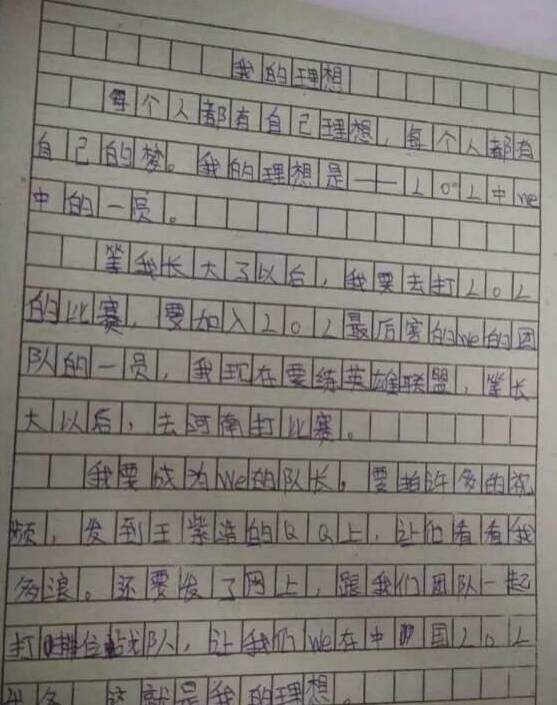 我的理想
每个人都有自己理想，每个人都有
自己的梦。我的理想是——LOL中we
中的一员。
等我长大了以后，我要去打LOL
的比赛，要加入LOL最后害的we的团
队的一员，我现在要练英雄联盟，等长
大以后，去河南打比赛。
我要成为We的队长，要拍许多的视
频，发到王紫浩的QQ上，让他看看我
多浪。还要发了网上，跟我们团队一起
打排位战队，让我们We在中国LOL
出名，这就是我的理想。